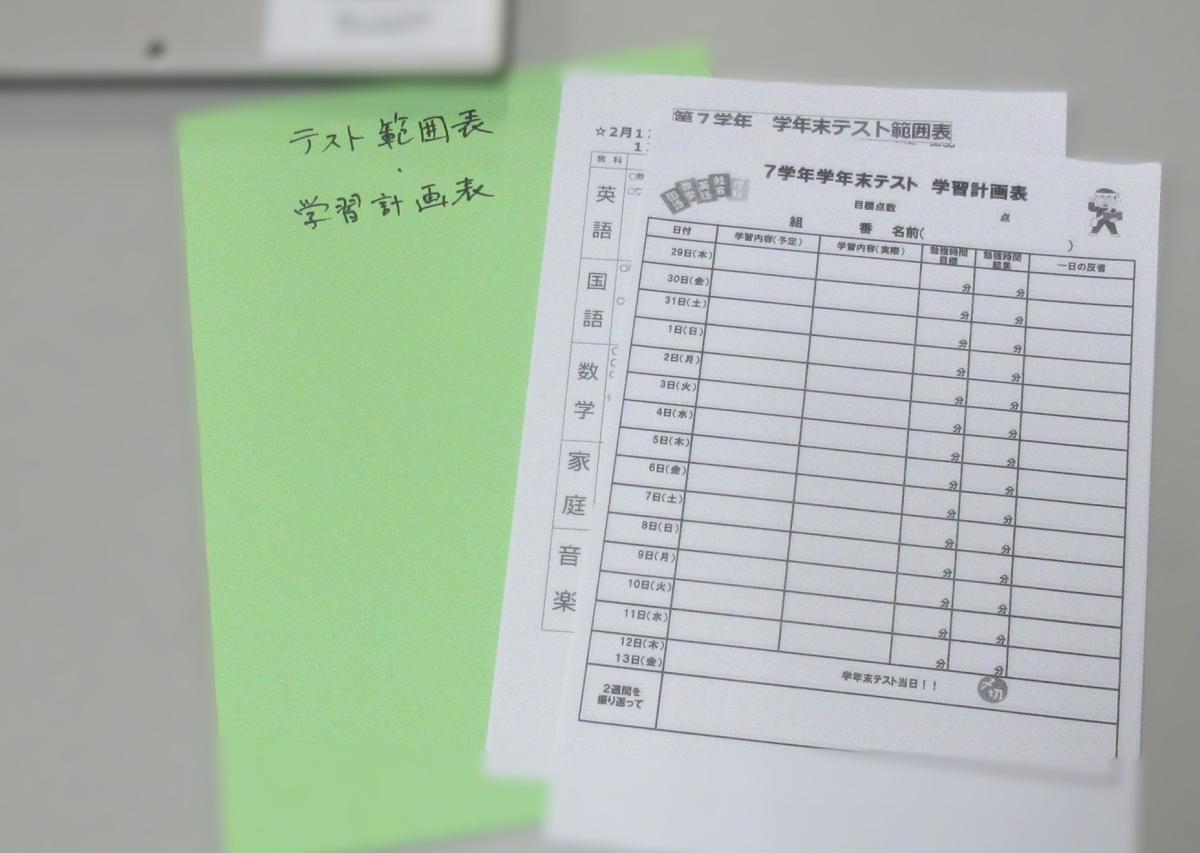 テスト範囲表
・
学習計画表
第7学年 学年末テスト範囲表
☆2月1
教科
英語
国語
数学
家庭
音楽
7学年学年末テスト 学習計画表
目標点数 点
組 番 名前( )
日付 学習内容(予定) 学習内容(実際) 勉強時間目標 勉強時間結果 一日の反省
29日(木)
30日(金) 分 分
31日(土) 分 分
1日(日) 分 分
2日(月) 分 分
3日(火) 分 分
4日(水) 分 分
5日(木) 分 分
6日(金) 分 分
7日(土) 分 分
8日(日) 分 分
9日(月) 分 分
10日(火) 分 分
11日(水) 分 分
12日(木) 分 分
13日(金) 学年末テスト当日!! 〆切
2週間を
振り返って